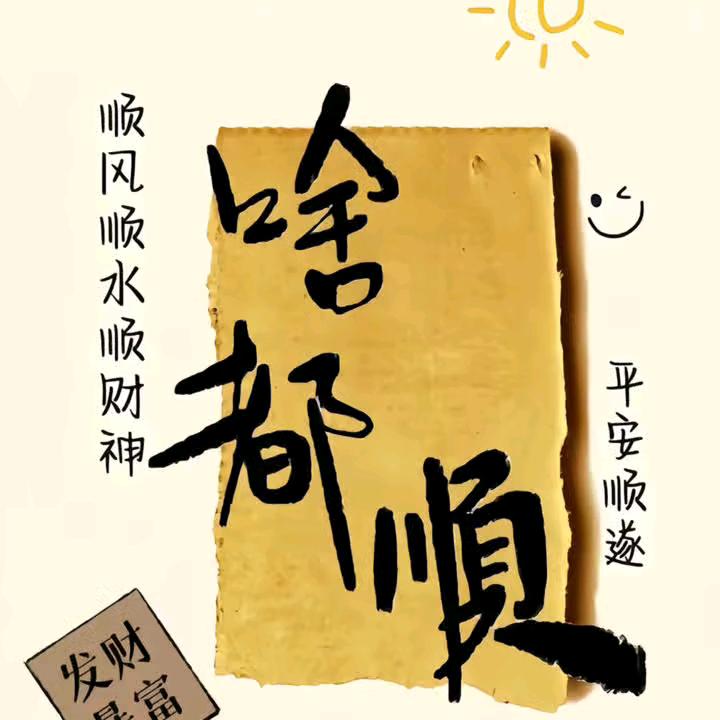 顺风顺水顺财神
啥都顺
平安顺遂
发财
暴富